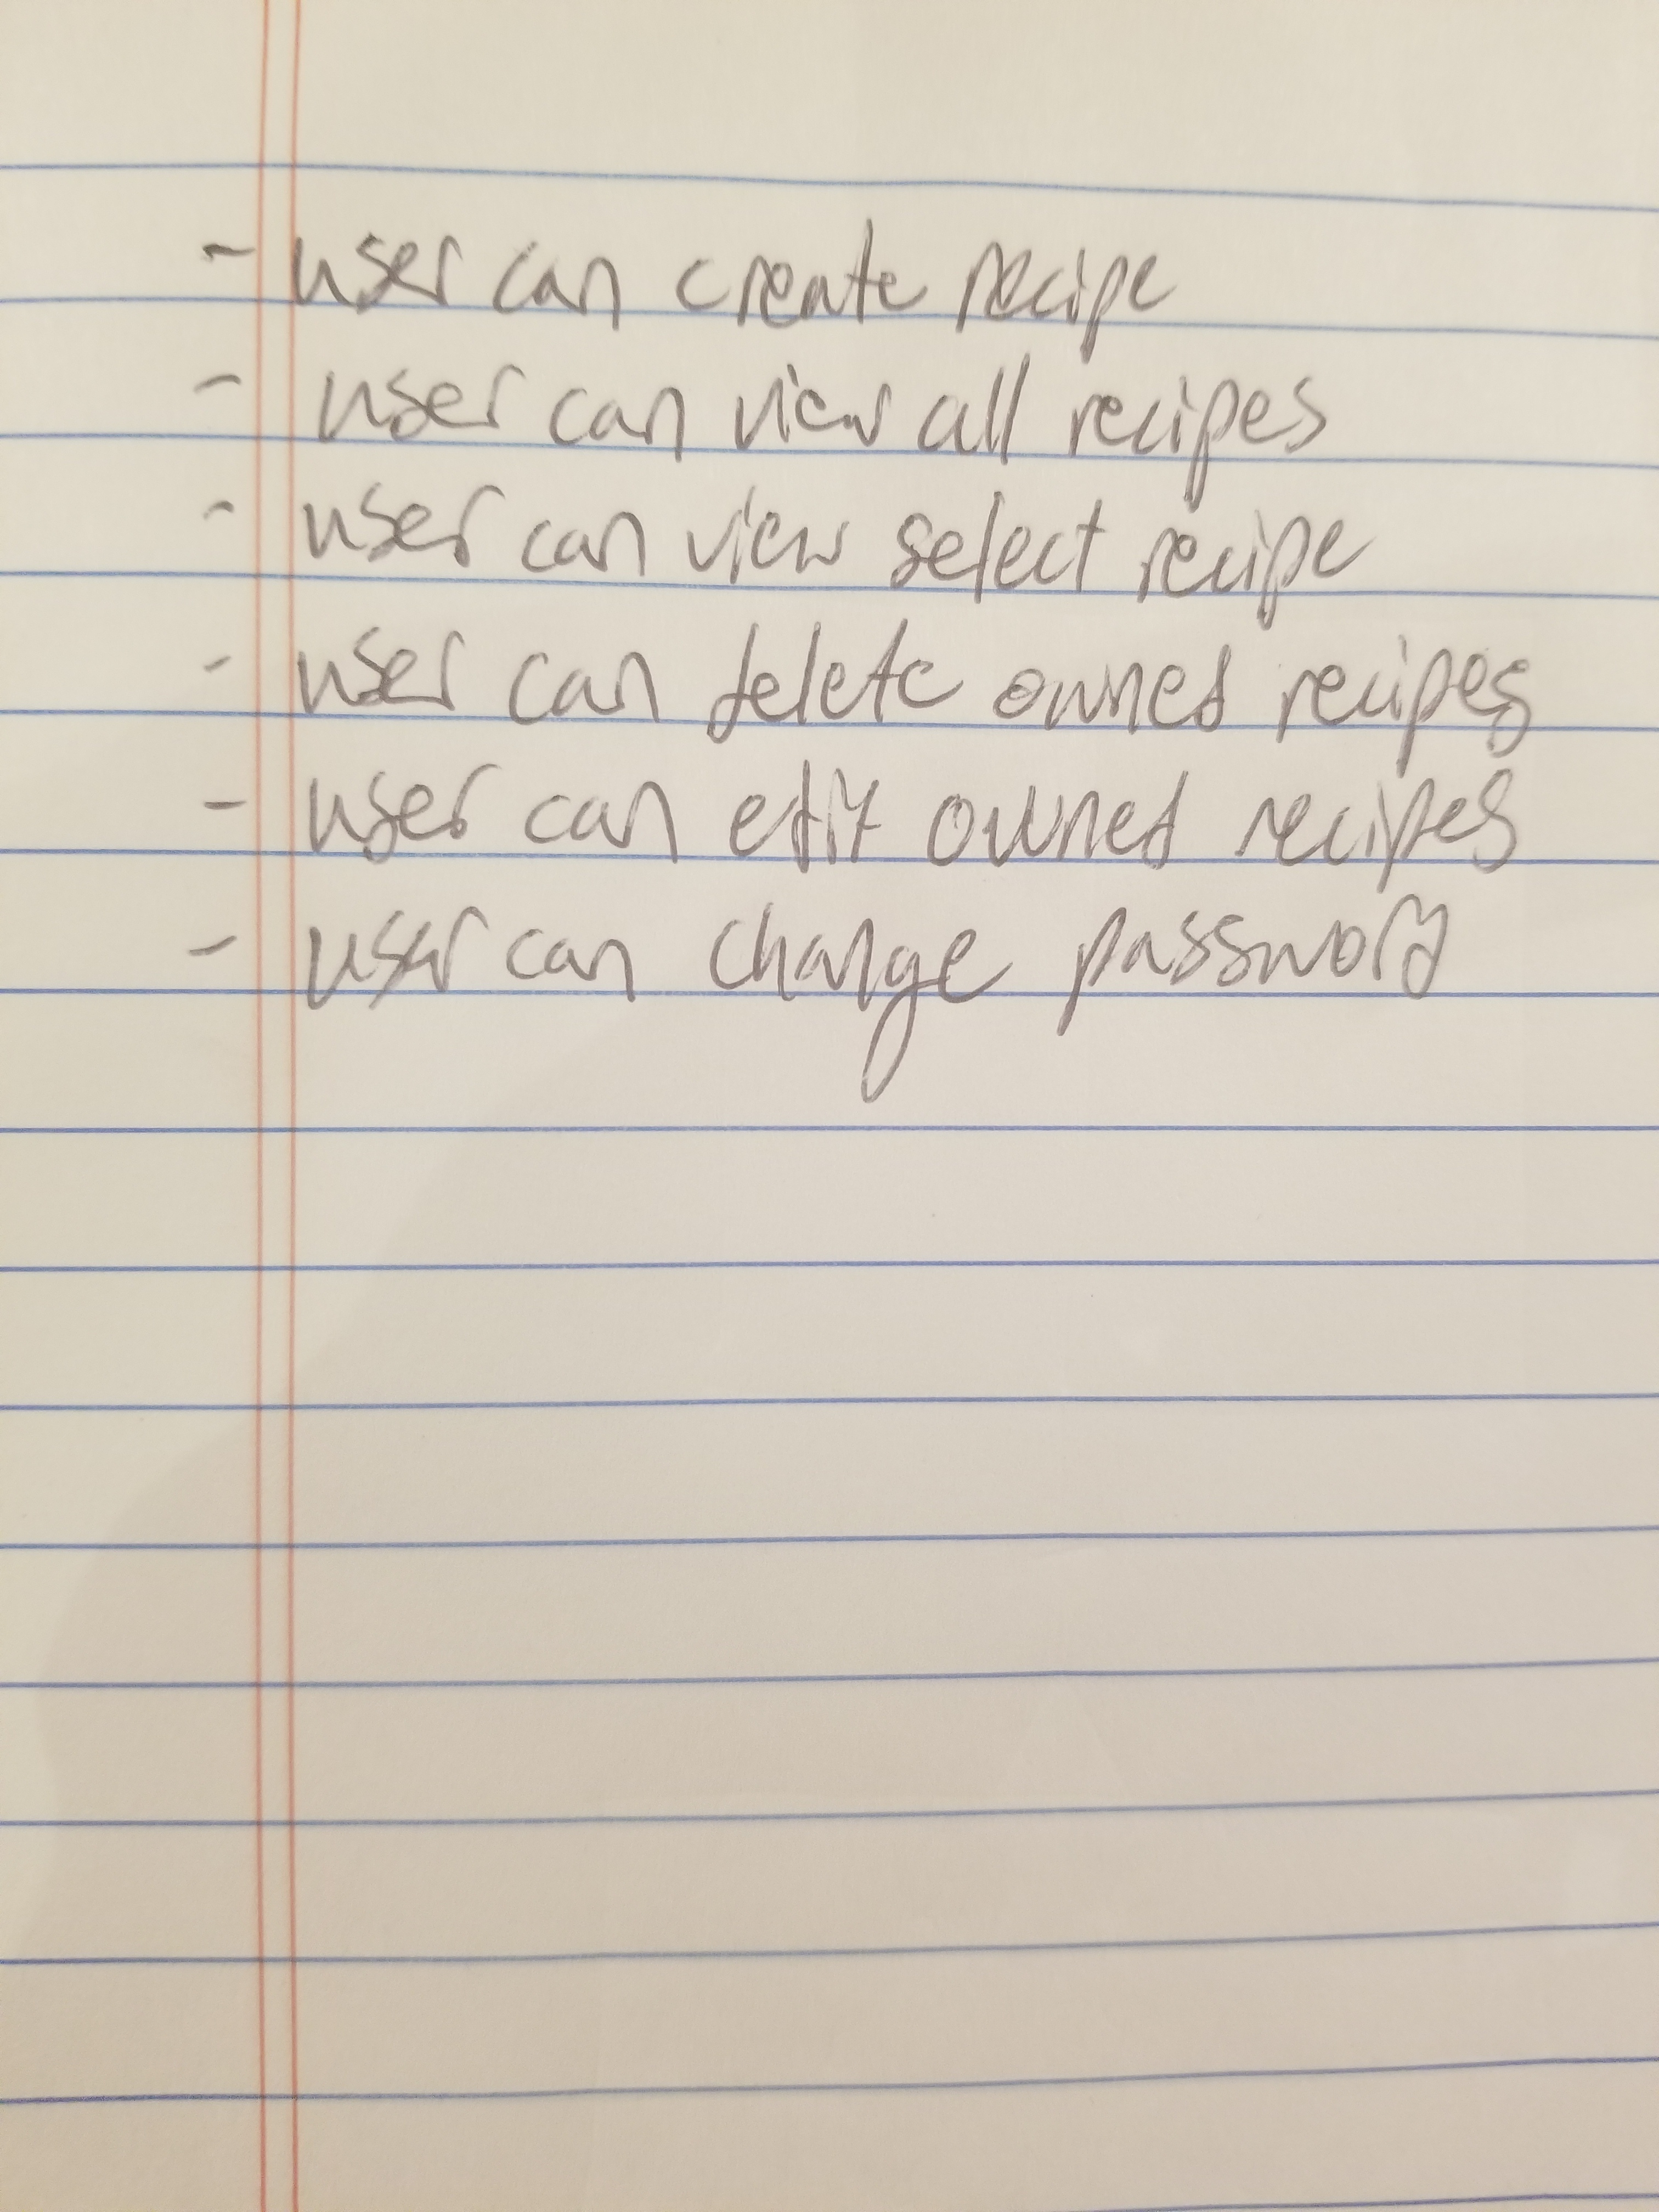 - user can create recipe
- user can view all recipes
- user can view select recipe
- user can delete owned recipes
- user can edit owned recipes
- user can change password